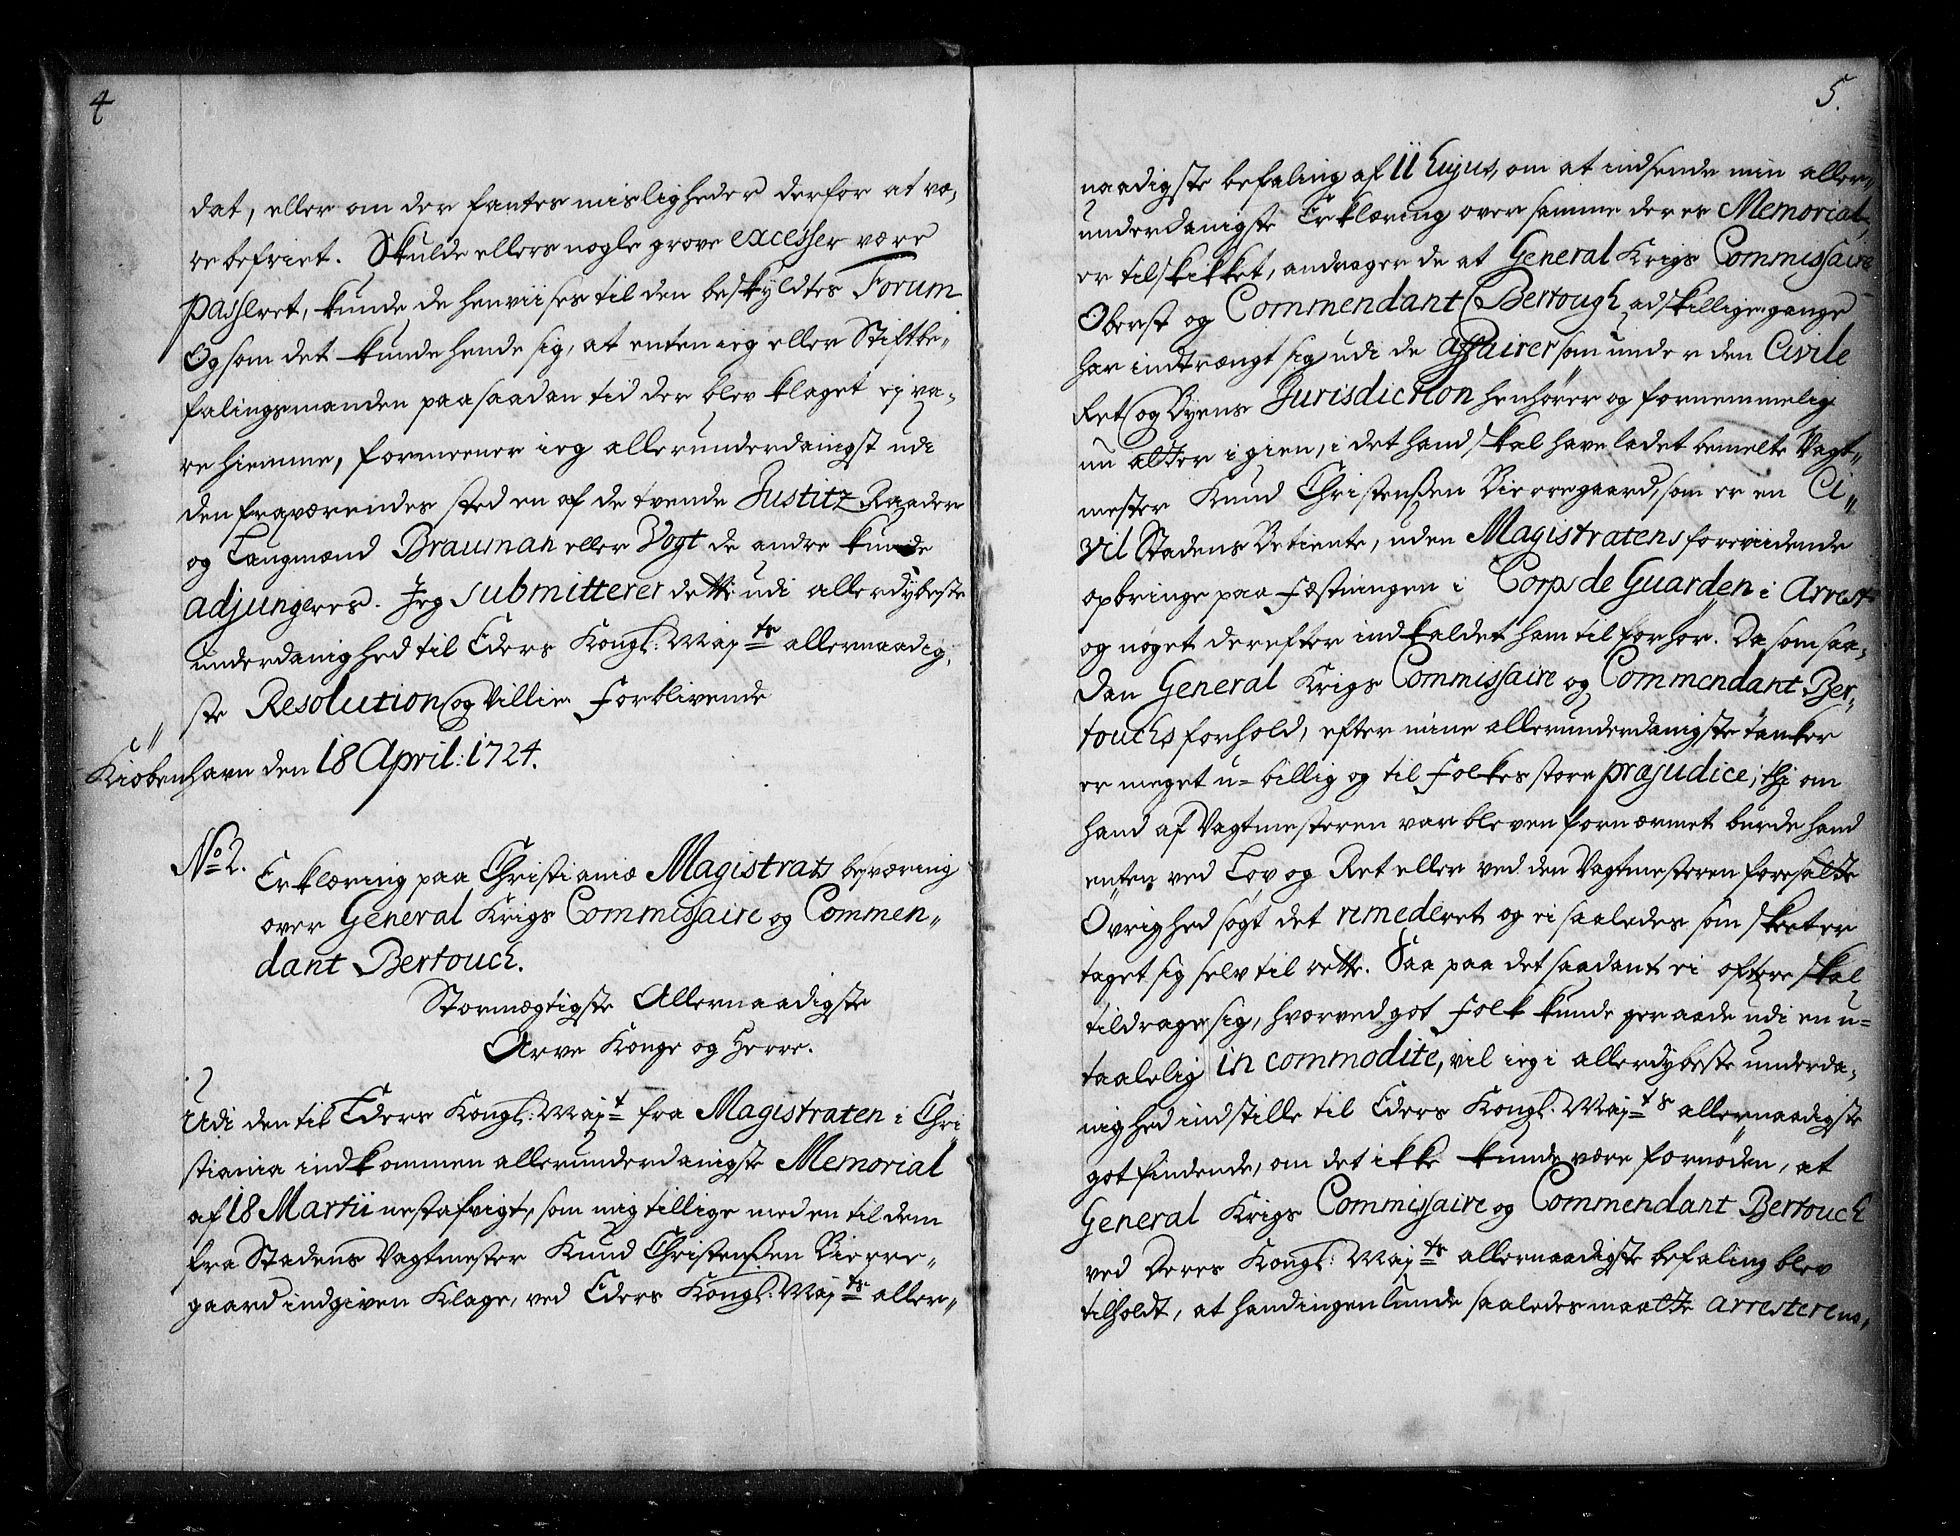 4
dat, eller om der fantes misligheder derfor at væ,
re befriet. Skulde ellers nogle grove excesser være
passeret, kunde de henviises til den beskyldtes Forum
Og som det kunde hende sig, at enten ieg eller Stiftbe,
falingsmanden paa saadan tid der blev klaget ej va,
re hiemme, formeener ieg allerunderdaingst udi
den fraværendes sted en af de tvende Justitz Raader
og Laugmænd Brauman eller Vogt de andre kunde
adjungeres. Jeg submitterer dette udi allerdybeste
underdanighed til Eders Kongl: Maj.ts allernaadig,
ste Resolution og Villie. Forblivende
Kiøbenhavn den 18 April: 1724.
No 2. Erklæring paa Christianiæ Magistrats besværing
over General Krigs Commissaire og Commen„
dant Bertouch.
Stormægtigste Allernaadigste
Arve Konge og Herre.
Udi den til Eders Kongl: Maj.t fra Magistraten i Chri
stiania indkommen allerunderdanigste Memorial
af 18 Martii nestafvigt, som mig tillige med en til dem
fra Stadens Vagtmester Knud Christenßen Bierre„
gaard indgiven Klage, ved Eders Kongl: Maj.ts aller„
5.
naadigste befaling af 11 hujus, om at indsende min aller„
underdanigste Erklæring over samme deres Memorial,
er tilskikket, andrager de at General Krigs Commissaire
Oberst og Commendant Bertough adskillige gange
har indtrængt sig udi de affairer som under den Civile
Ret og Byens Jurisdiction henhører og fornemmelig
nu atter igien, i det hand skal have ladet bemelte Vagt„
mester Knud Christenßen Bierregaard, som er en Ci„
vil Stadens Betiente, uden Magistratens foreviidende
opbringe paa Fæstningen i Corps de Guarden i Arrest
og noget derefter indkaldet ham til forhör. Da som saa,
dan General Krigs Commissaire og Commendant Ber„
touchs forhold, efter mine allerunderdanigste tanker
er meget u= billig og til Folkes store præjudice; thi om
hand af Vagtmesteren var bleven fornærmet burde hand
enten ved Lov og Ret eller ved den Vagtmesteren foresatte
Øvrighed søgt det remederet og ei saaledes som skeet er
taget sig selv til rette. Saa paa det saadant ei oftere skal
tildrage sig, hvorved got Folk kunde geraade udi en u=
taalelig incommodite, vil ieg i allerdybeste underda,
nighed indstille til Eders Kongl. Maj.ts allernaadigste
gotfindende, om det ikke kunde være fornöden, at
General Krigs Commissaire og Commendant Bertouch
ved Deres Kongl: Maj.ts allernaadigste befaling blev
tilholdt, at hand ingenlunde saaledes maatte arresterens,